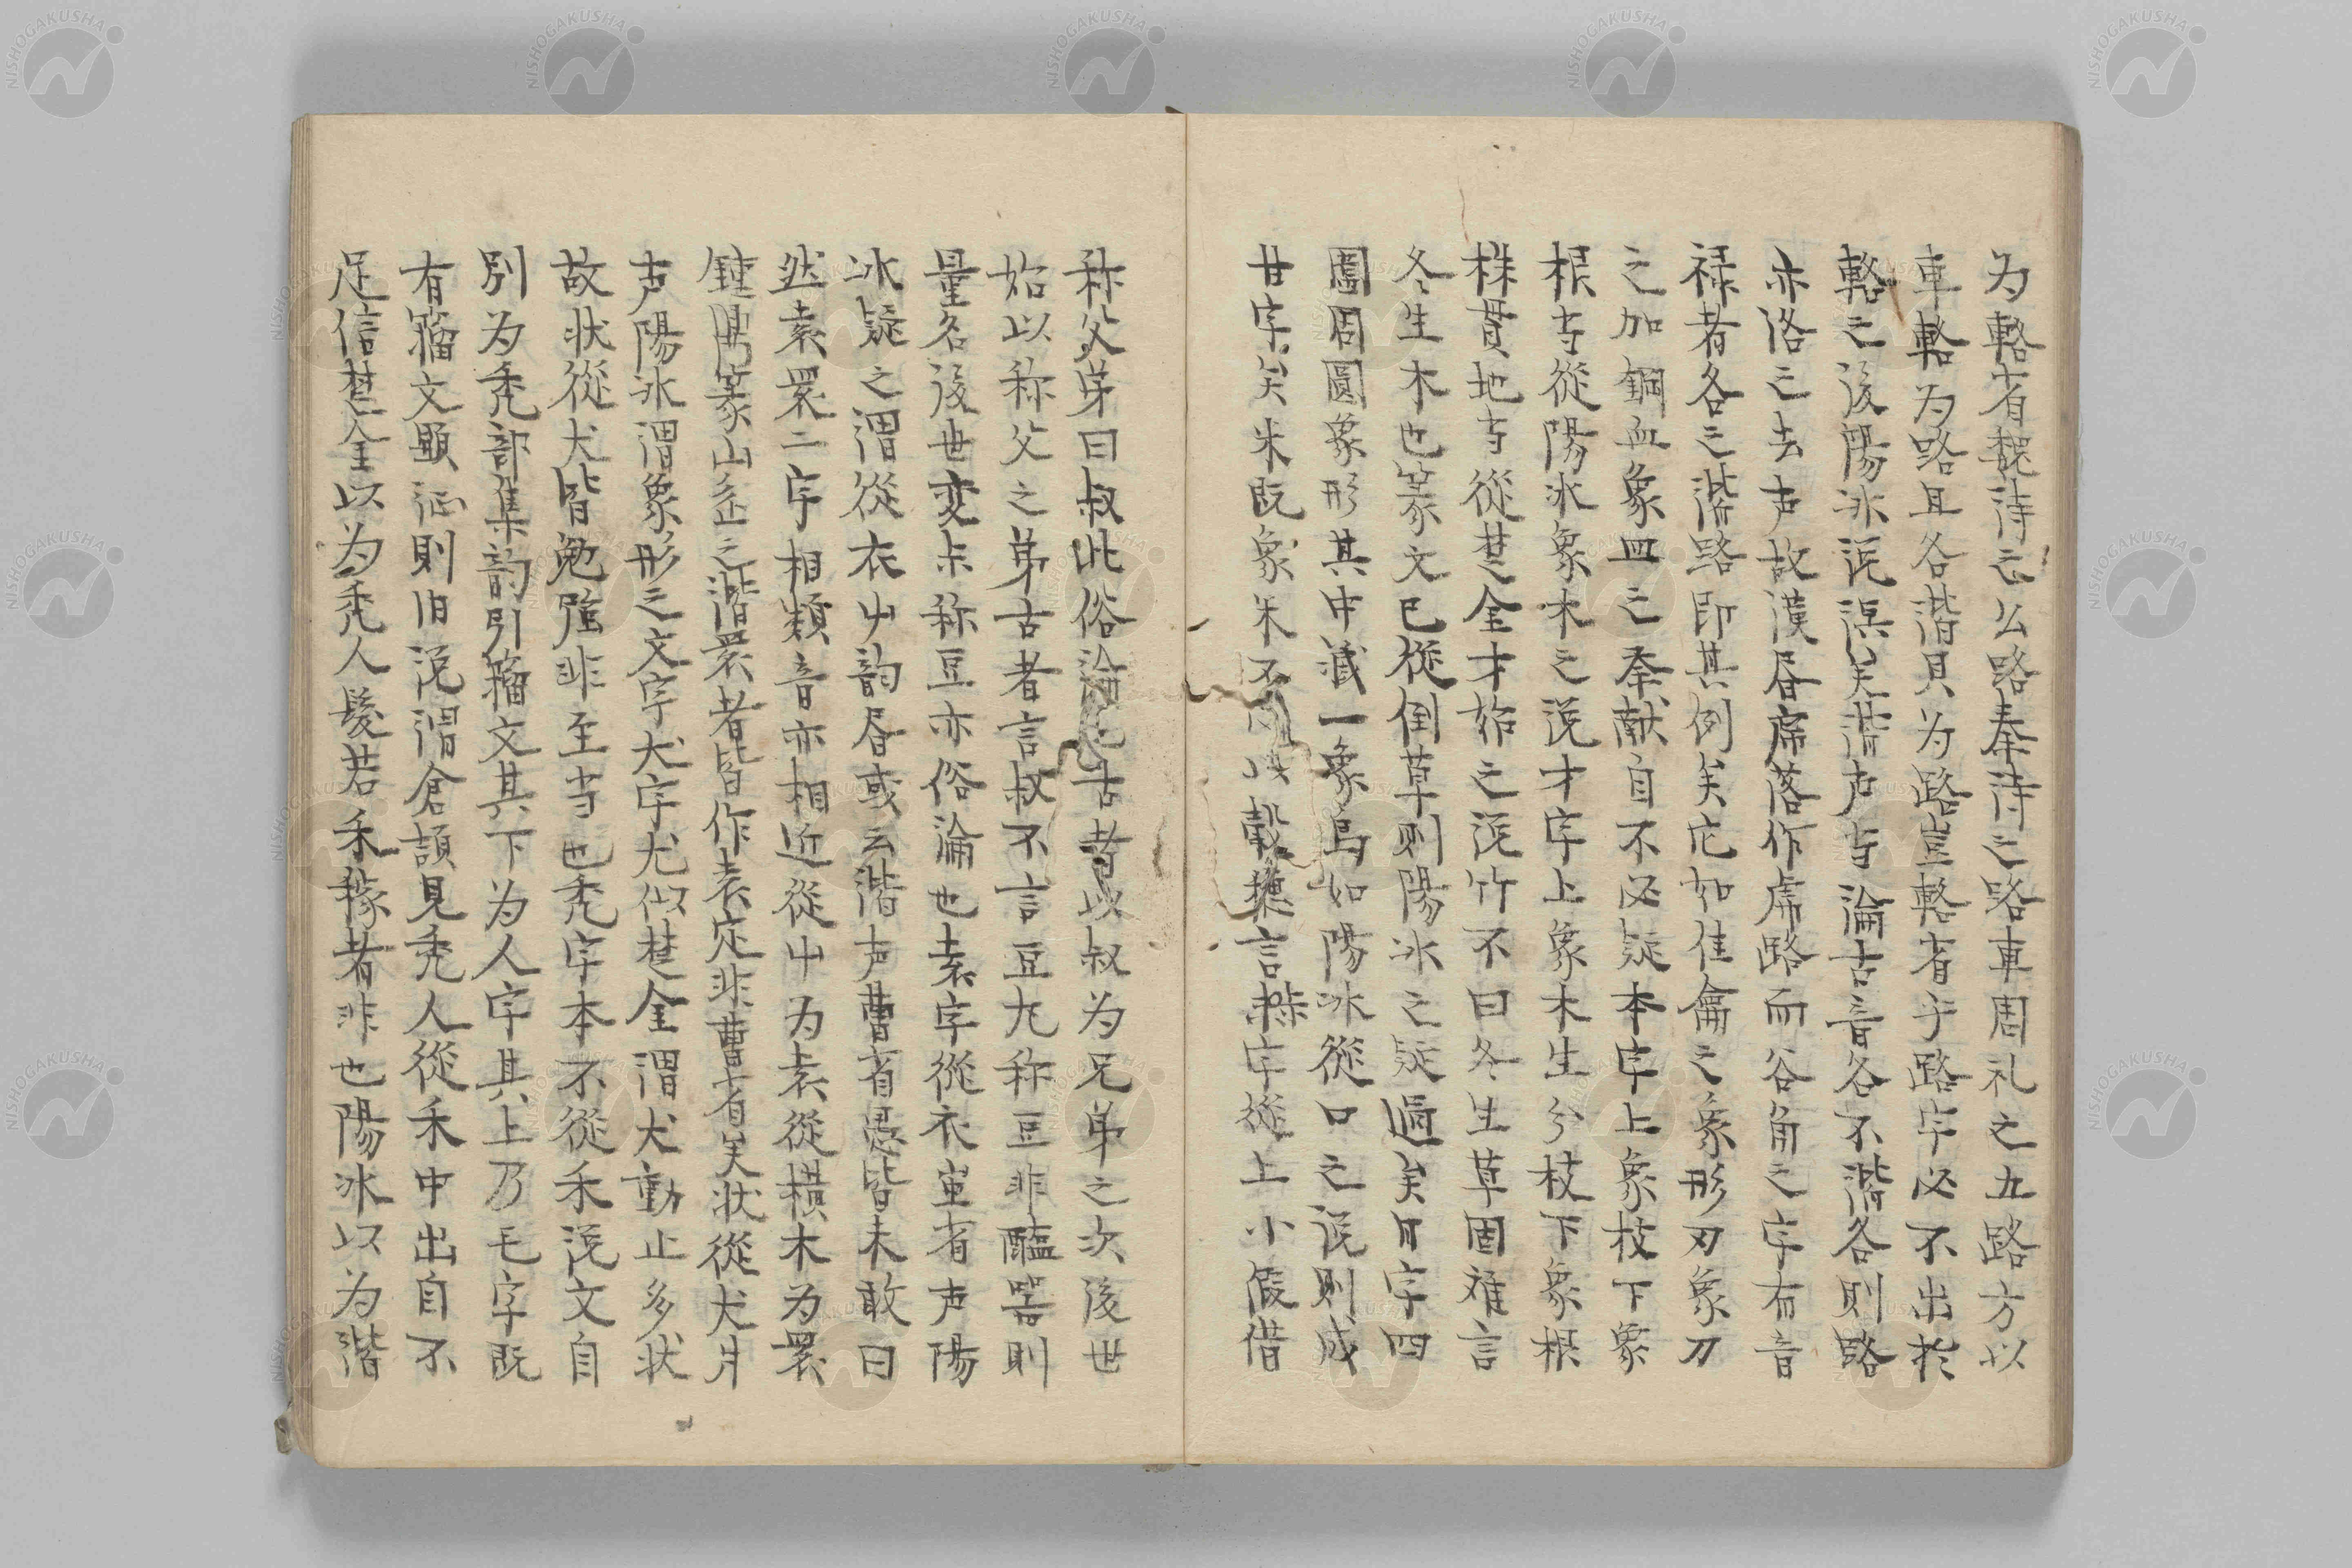 为輅者魏詩云公路奉詩之路車周礼之五路方以
車輅为路且各諧貝为路豈輅者乎路字必不出於
輅之後陽冰説誤矣諧声者論古音各不諧各則路
亦洛之去声故漢唇席落作席路而谷角之字有音
禄者各之諧路即其例矣它如隹龠之象形刃象刀
之加鋼血象皿之奉献自不必疑本字上象枝下象
根者從陽冰象木之説才字上象木生兮枝下象根
株貫地者從楚金才始之説竹不曰冬生草固难言
冬生木也篆文巳從倒草則陽冰之疑過矣日字四
圍周圓象形其中藏一象烏如陽冰從口之説則成
廿字矣米既象米不以穀言字從上小假借
称父弟曰叔此俗論古者以叔为兄弟之次後世
始以称父之弟古者言叔不言豆九称豆非醢器則
量名後世変尗称豆亦俗論也袁字從衣叀省声陽
冰疑之謂從衣屮韵唇或云諧声曹省憲皆未敢曰
然袁睘二字相類音亦相近從屮为袁從横木为睘
鍾鼎篆山岳之諧睘者皆作袁定非曹省矣状從犬爿
声陽冰謂象形之文字犬字尤似楚金謂犬動止多状
故状從犬皆勉強非至者也禿字本不從禾説文自
別为禿部集韵引籀文其下为人字其上乃毛字既
有籀文顕証則旧説謂倉頡見禿人從禾中出自不
足信楚金以为禿人髮若禾稼者非也陽冰以为諧